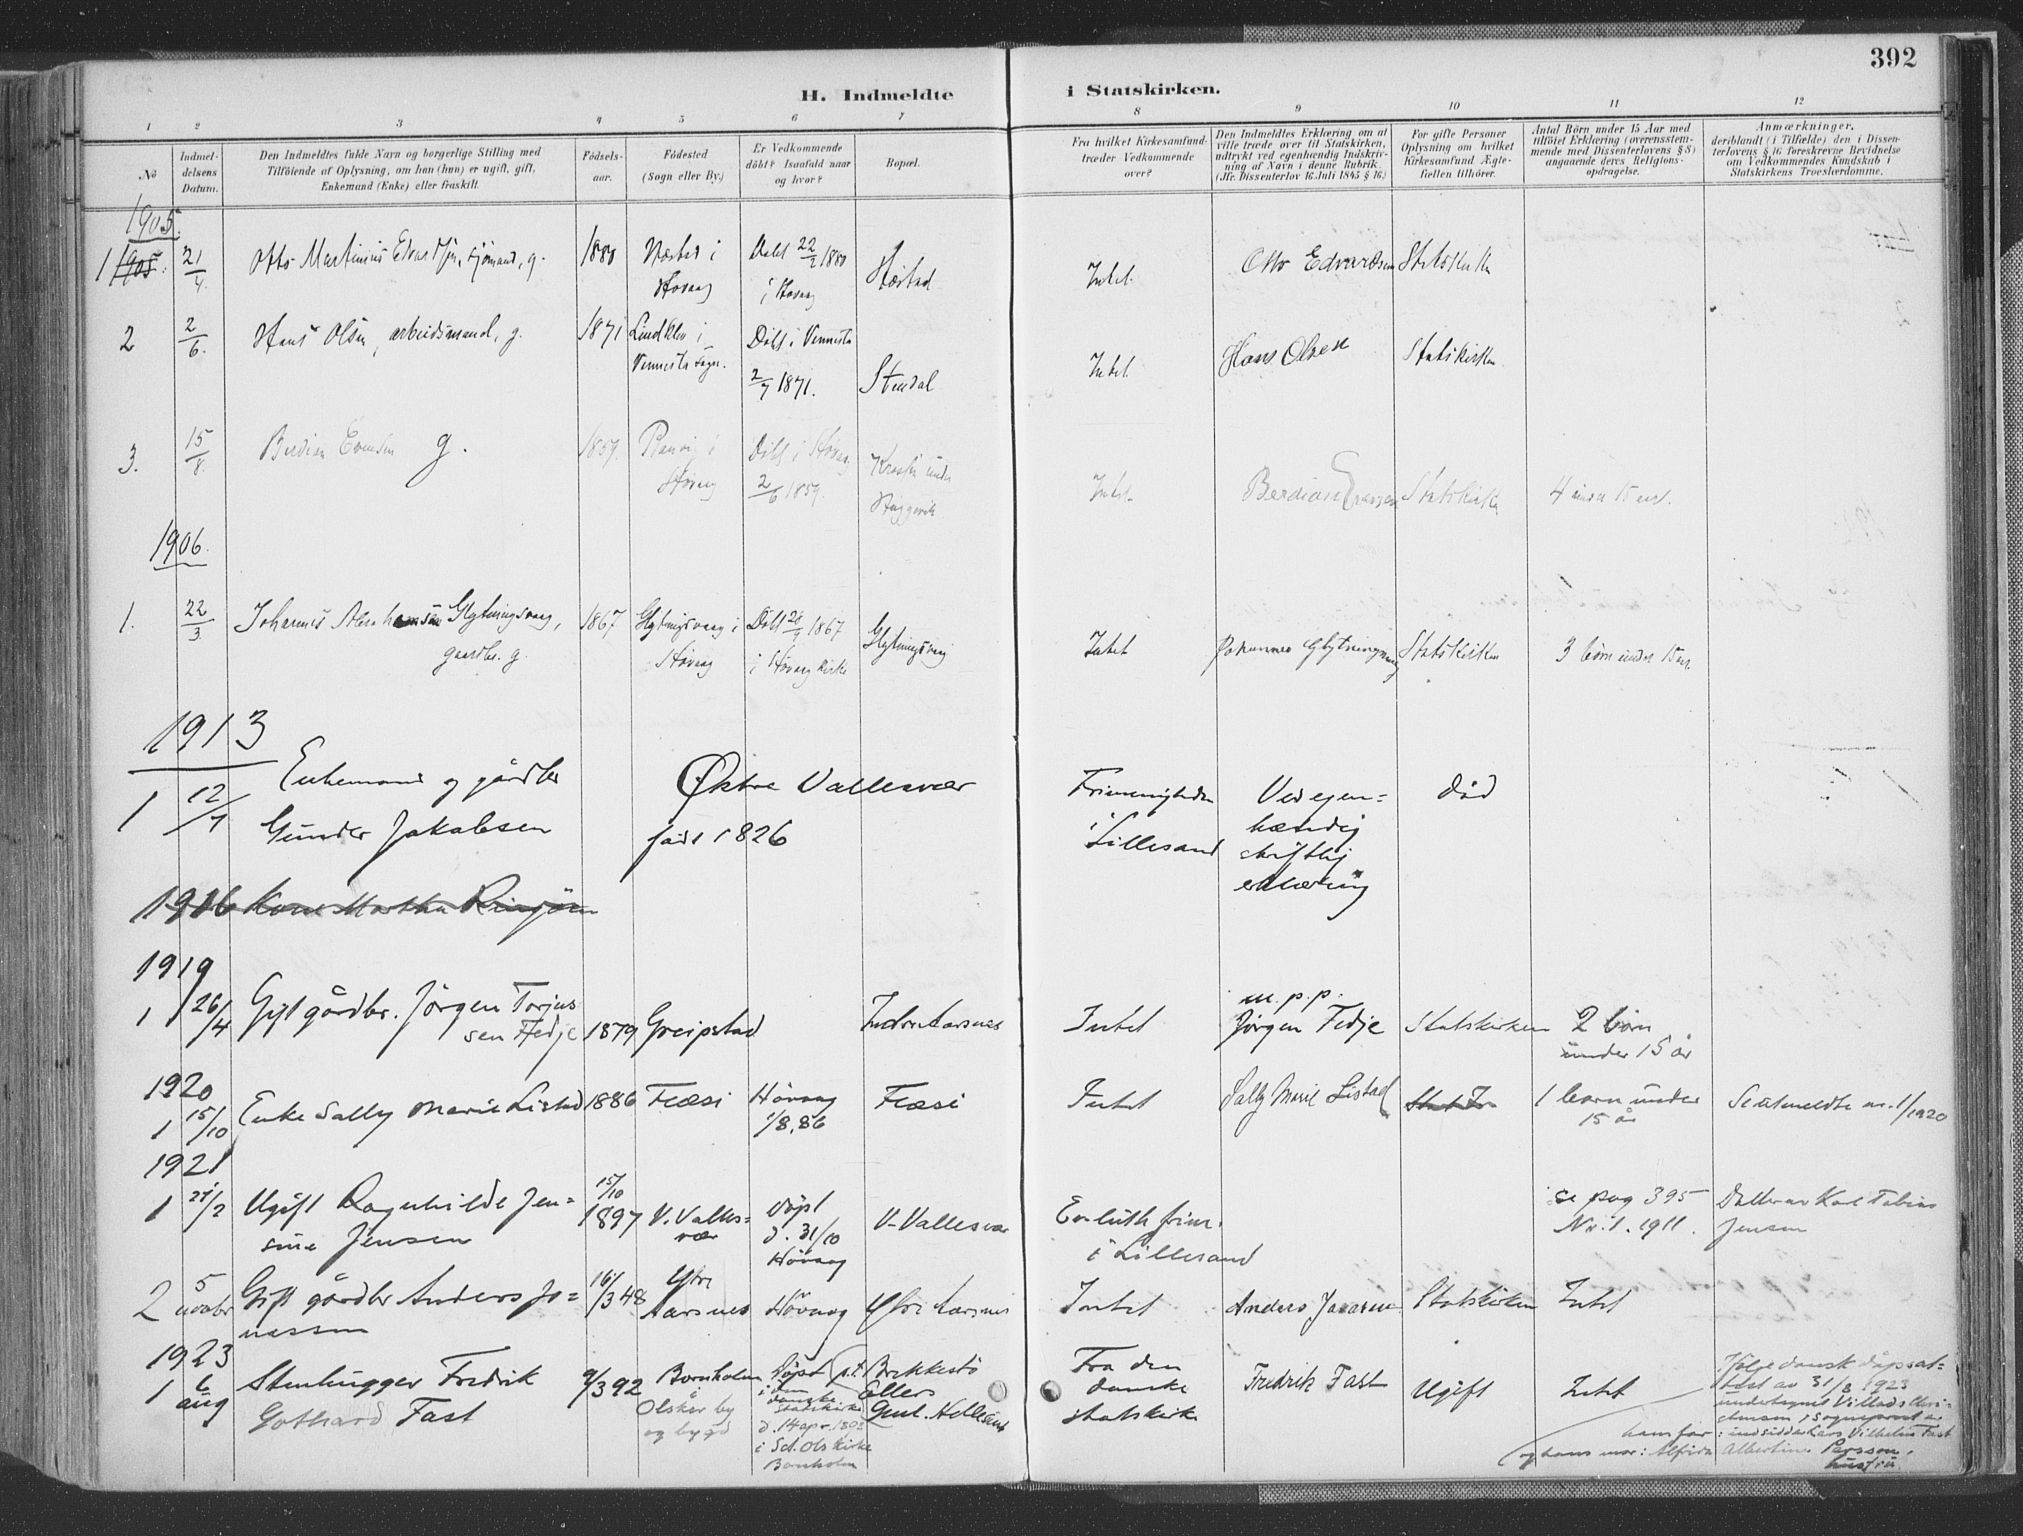 392
H. Indmeldte i Statskirken.
1 2 3 4 5 6 7 8 9 10 11 12
No
Indmeldelsens Datum.
Den Indmeldtes fulde Navn og borgerlige Stilling med
Tilföiende af Oplysning, om han (hun) er ugift, gift,
Enkemand (Enke) eller fraskilt.
Födsels-
aar.
Födested
(Sogn eller By.)
Er Vedkommende
döbt? Isaafald naar
og hvor?
Bopæl.
Fra hvilket Kirkesamfund
træder Vedkommende
over?
Den Indmeldtes Erklæring om at
ville træde over til Statskirken,
udtrykt ved egenhændig Indskriv-
ning af Navn i denne Rubrik.
(Jfr. Dissenterlov 16. Juli 1845 § 16.)
For gifte Personer
Oplysning om hvilket
Kirkesamfund Ægte-
fællen tilhörer.
Antal Börn under 15 Aar med
tilföiet Erklæring (overensstem-
mende med Dissenterlovens § 8)
angaaende deres Religions-
opdragelse.
Anmærkninger,
deriblandt (i Tilfælde) den i Dissen-
terlovens § 16 foreskrevne Bevidnelse
om Vedkommendes Kundskab i
Statskirkens Troeslærdomme.
1905.
1 1905. 21/4. Otto Martinius Edvardsen, sjömand, g. 1880 i Hövaag Döbt 22/2 1880 i Hövaag Intet. Otto Edvardsen Statskirken
2 2/6. Hans Olsen, arbeidsmand, g. 1871 i Vennesla sogn. Döbt i Vennesla 2/7 1871. Stendal Intet. Hans Olsen Statskirken
3. 15/8. Berdian Evensen g. 1859. i Hövaag Döbt i Hövaag 2/6 1859. Intet. Berdian Statskirken 4 under 15 aar.
1906.
1. 22/3 Johannes Abrahamsen Glytningsvaag,
gaardbr. g. 1867 Glytningsvaag i Hövaag Döbt 1867 i Hövaag Kirke Glytningsvaag Intet Johannes Glytningsvaag Statskirken 3 börn under 15 aar
1913
1 12/7 Enkemand og gårdbr
Gunder Jakobsen
Østre Vallesvær
född 1826
Frimenigheden
i Lillesand
Ved egen=
hændig
skriftlig
erklæring
død
1916 Kone Martha
1919
1 26/4 Gift gårdbr. Jörgen Torjus
sen Fedje 1879 Greipstad Indre Aarsnes Intet m.p.p.
Jörgen Fedje Statskirken 2 börn
under 15 år
1920
1 15/10 Enke Sally Marie Listad 1886 Fløsi Höväag
1/8.86 Fløsi Intet Sally Marie Listad 1 barn under
15 år Se utmeldte nr. 1/1920
1921
1 21/2 Ugift Ragnhilde Jen=
sine Jensen 15/10
1897 V. Valles=
vær döpt
d. 31/10
Hövaag V. Vallesvær Ev. luth frim.
i Lillesand se pag 395
Nr. 1. 1911. Datter av Karl Tobias
Jensen
2 5 novbr Gift gårdbr Anders Jo=
nassen 16/3 48 Ytre
Aarsnes Hövaag Ytre Aarsnes Intet Anders Statskirken Intet
1923
1 6 aug Stenhugger Fredrik
Gothard Fast 9/3 92 Bornholm
Olsker by
og bygd Döpt
i den
danske
statskirke
d. 14 apr.
i Sct. Ols kirke
Bornholm p.t. Brekkestö
Eller
Fra den
danske
statskirke Fredrik Fast Ugift Intet
Ifølge dansk dåpsat=
test av 31/8 1923
undertegnet Villads Chri=
stensen, Sogneprest er
hans far: indsidder Lars Vilhelm Fast
og hans mor: Alfrida Albertine Persson,
hustru.